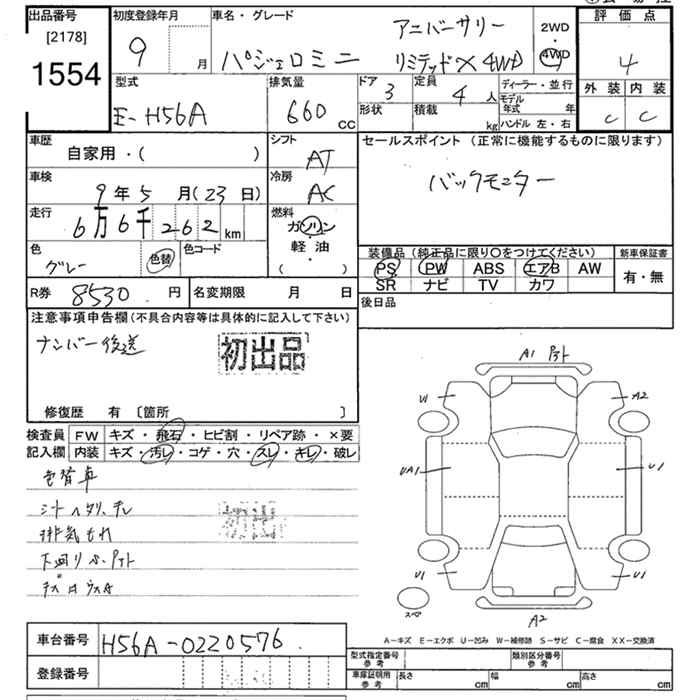 出品番号
[2178]
1554
初度登録年月
9 月
車名・グレード
パジェロミニ
アニバーサリー
リミテッドX 4WD
2WD
4WD
評価点
4
外装 内装
C C
型式
E-H56A
排気量
660 CC
ドア 3
形状
定員 4 人
積載 kg
ディーラー・並行
モデル年式 年
ハンドル 左・右
車歴
自家用・( )
シフト
AT
セールスポイント (正常に機能するものに限ります)
バックモニター
車検
9年5月(23日)
冷房
AC
走行
6万6千262km
燃料
ガソリン
軽・油
( )
色
グレー
色替
色コード
装備品(純正品に限り〇をつけてください)
PS PW ABS エアB AW
SR ナビ TV カワ
新車保証書
有・無
R券 8530 円
名変期限 月 日
後日品
注意事項申告欄(不具合内容等は具体的に記入して下さい)
ナンバー後送
初出品
修復歴 有 〔箇所 〕
検査員 FW キズ・飛石・ヒビ割・リペア跡・×要
記入欄 内装 キズ・汚レ・コゲ・穴・スレ・キレ・破レ
色替車
シートヘタリ、チレ
排気もれ
初出
A1
W
A2
UA1
U1
U1
U1
スペ
A2
A-キズ E-エクボ U-凹み W-補修跡 S-サビ C-腐食 XX-交換済
車台番号 H56A-0220576
登録番号
型式指定番号
参考
類別区分番号
参考
車庫証明用
参考
長さ cm
幅 cm
高さ cm